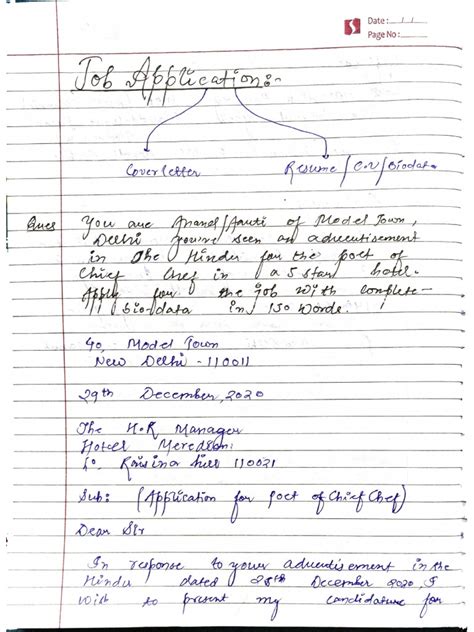 Date: / /
Page No:
Job Application:-
Cover letter
Resume / C.V / Biodata
Ques You are Anand/Aarti of Model Town,
Delhi you've seen an advertisement
in the Hindu for the post of
Chief Chef in a 5 star hotel.
Apply for the job with complete
bio-data in 150 words.
Model Town
New Delhi - 110011
29th December, 2020
The H.R Manager
Hotel Meredien
Raisina hill 110021
Sub: (Application for post of Chief Chef)
Dear Sir
In response to your advertisement in the
Hindu dated 25th December 2020 I
wish to present my candidature for